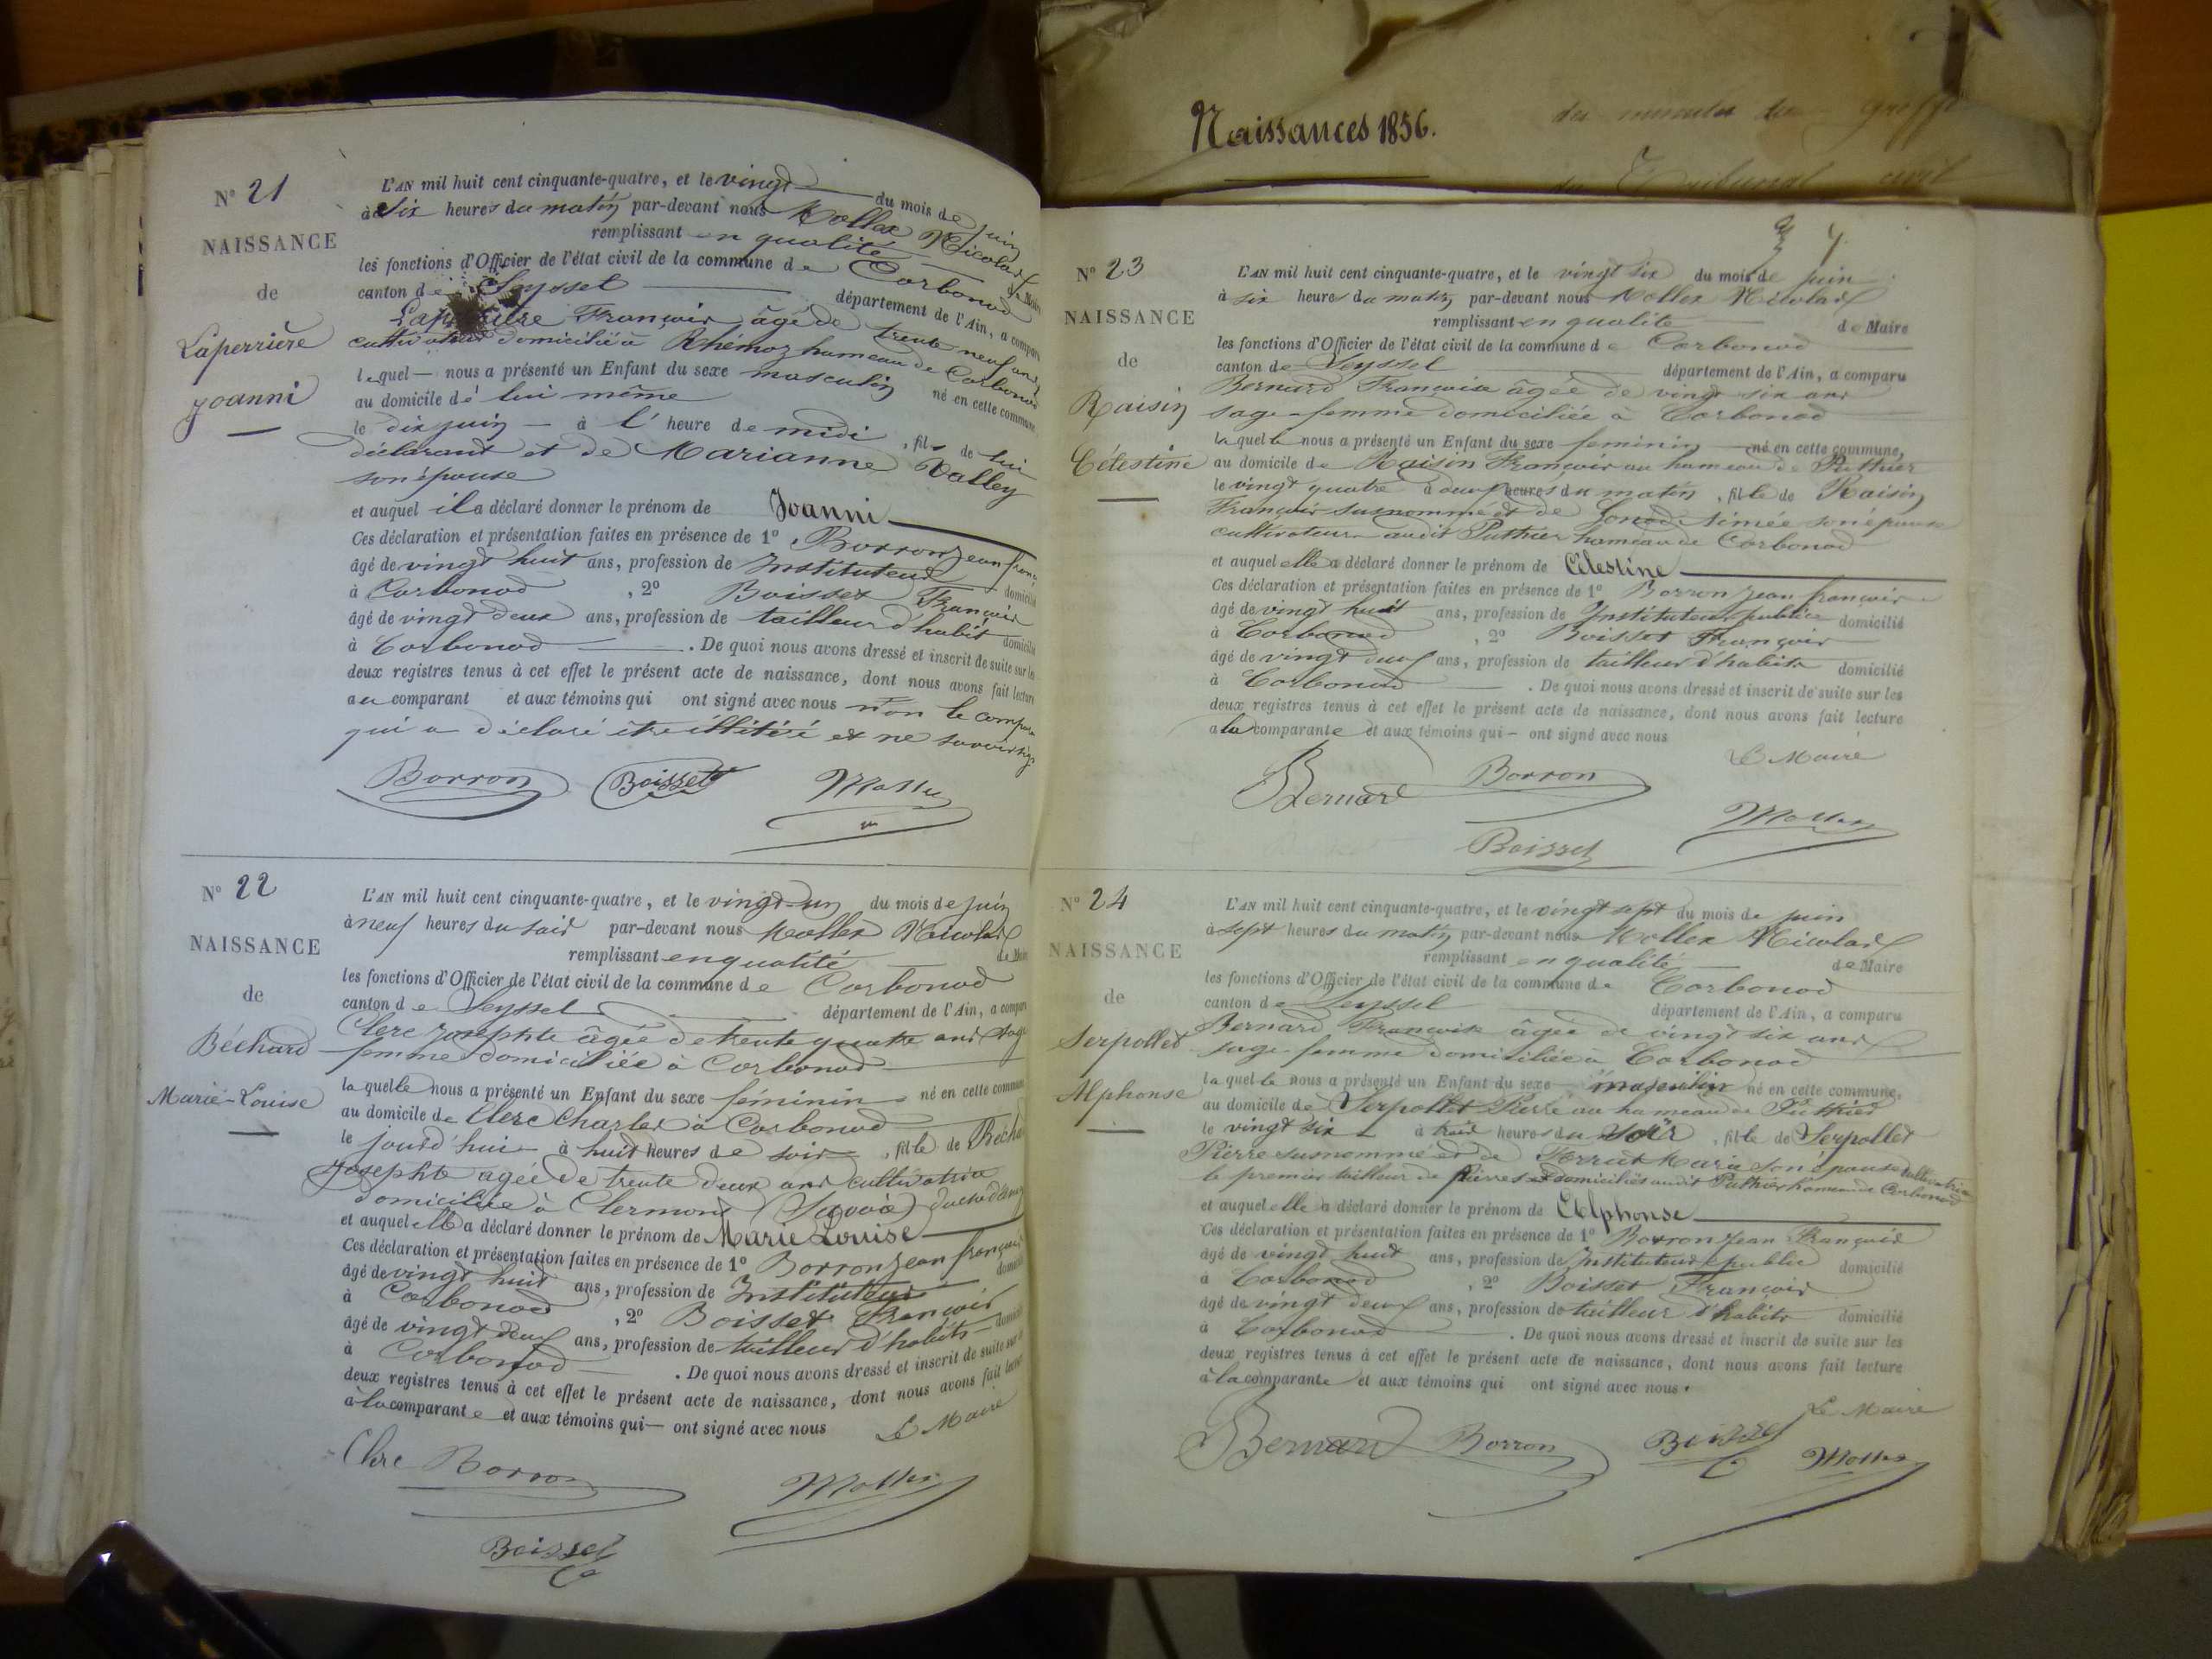 Naissances 1856.
des minutes du Greffe
Tribunal civil
N° 21
NAISSANCE
de
Laperrière
Joanni
L'AN mil huit cent cinquante-quatre, et le vingt du mois de juin
à six heures du matin par-devant nous Mollex Nicolas
remplissant en qualité de Maire
les fonctions d'Officier de l'état civil de la commune de Corbonod
canton de Seyssel département de l'Ain, a comparu
François âgé de trente neuf ans
cultivateur domicilié à Rhémoz hameau de Corbonod
lequel nous a présenté un Enfant du sexe masculin né en cette commune,
au domicile de lui même
le dix juin à l'heure de midi, fils de lui
déclarant et de Marianne Valley
son épouse
et auquel il a déclaré donner le prénom de Joanni
Ces déclaration et présentation faites en présence de 1° Borron Jean Franç
âgé de vingt huit ans, profession de Instituteur domicilié
à Corbonod, 2° Boisset François
âgé de vingt deux ans, profession de tailleur d'habits domicilié
à Corbonod. De quoi nous avons dressé et inscrit de suite sur les
deux registres tenus à cet effet le présent acte de naissance, dont nous avons fait lecture
au comparant et aux témoins qui ont signé avec nous non le compara
qui a déclaré être illitéré et ne savoir sig
Borron Boisset Mollex
N° 22
NAISSANCE
de
Béchard
Marie-Louise
L'AN mil huit cent cinquante-quatre, et le vingt-un du mois de juin
à neuf heures du soir par-devant nous Mollex Nicolas
remplissant en qualité de Maire
les fonctions d'Officier de l'état civil de la commune de Corbonod
canton de Seyssel département de l'Ain, a comparu
Clerc Josephte âgée de trente quatre ans sage
femme domiciliée à Corbonod
laquelle nous a présenté un Enfant du sexe féminin né en cette commune
au domicile de Clerc Charles à Corbonod
le jourd'hui à huit heures de soir, fille de Bécha
Josephte agée de trente deux ans cultivatrice
domiciliée à Clermont (Savoie)
et auquel elle a déclaré donner le prénom de Marie Louise
Ces déclaration et présentation faites en présence de 1° Borron Jean François
âgé de vingt huit ans, profession de Instituteur domicilié
à Corbonod, 2° Boisset François
âgé de vingt deux ans, profession de tailleur d'habits domicilié
à Corbonod. De quoi nous avons dressé et inscrit de suite sur les
deux registres tenus à cet effet le présent acte de naissance, dont nous avons fait lecture
à la comparante et aux témoins qui ont signé avec nous Le Maire
Clerc Borron Mollex
Boisset
N° 23
NAISSANCE
de
Raisin
Célestine
L'AN mil huit cent cinquante-quatre, et le vingt six du mois de juin
à six heures du matin par-devant nous Mollex Nicolas
remplissant en qualité de Maire
les fonctions d'Officier de l'état civil de la commune de Corbonod
canton de Seyssel département de l'Ain, a comparu
Bernard Françoise âgée de vingt six ans
sage-femme domiciliée à Corbonod
laquelle nous a présenté un Enfant du sexe feminin né en cette commune,
au domicile de Raisin François au hameau de Puthier
le vingt quatre à deux heures du matin, fille de Raisin
François susnommé et de Gonod Aimée son épouse
cultivateurs audit Puthier hameau de Corbonod
et auquel elle a déclaré donner le prénom de Célestine
Ces déclaration et présentation faites en présence de 1° Borron Jean françois
âgé de vingt huit ans, profession de Instituteur public domicilié
à Corbonod, 2° Boisset François
âgé de vingt deux ans, profession de tailleur d'habits domicilié
à Corbonod. De quoi nous avons dressé et inscrit de suite sur les
deux registres tenus à cet effet le présent acte de naissance, dont nous avons fait lecture
a la comparante et aux témoins qui ont signé avec nous
Le Maire
Bernard Borron
Mollex
Boisset
N° 24
NAISSANCE
de
Serpollet
Alphonse
L'AN mil huit cent cinquante-quatre, et le vingt sept du mois de juin
à sept heures du matin par-devant nous Mollex Nicolas
remplissant en qualité de Maire
les fonctions d'Officier de l'état civil de la commune de Corbonod
canton de Seyssel département de l'Ain, a comparu
Bernard Françoise âgée de vingt six ans
sage-femme domiciliée à Corbonod
laquelle nous a présenté un Enfant du sexe masculin né en cette commune,
au domicile de Serpollet Pierre au hameau de Puthier
le vingt six à trois heures du soir, fille de Serpollet
Pierre susnommé et de Perret Marie son épouse cultivatrice
le premier tailleur de pierres domiciliés audit Puthier hameau de Corbonod
et auquel elle a déclaré donner le prénom de Alphonse
Ces déclaration et présentation faites en présence de 1° Borron Jean François
âgé de vingt huit ans, profession de Instituteur public domicilié
à Corbonod, 2° Boisset François
âgé de vingt deux ans, profession de tailleur d'habits domicilié
à Corbonod. De quoi nous avons dressé et inscrit de suite sur les
deux registres tenus à cet effet le présent acte de naissance, dont nous avons fait lecture
à la comparante et aux témoins qui ont signé avec nous.
Le Maire
Bernard Borron Boisset Mollex